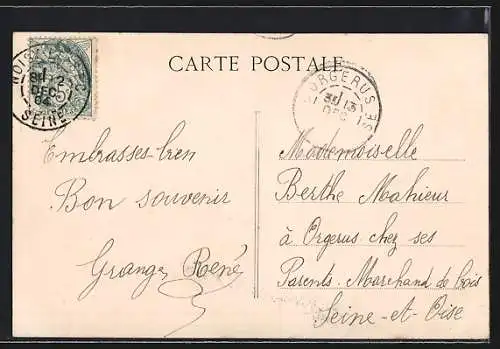 CARTE POSTALE
DEC
04
SEINE
ORGERUS
DEC
Embrasses-bien
Bon souvenir
Granger René
Mademoiselle
Berthe Mahieur
à Orgerus chez ses
Parents. Marchand de bois
Seine-et-Oise